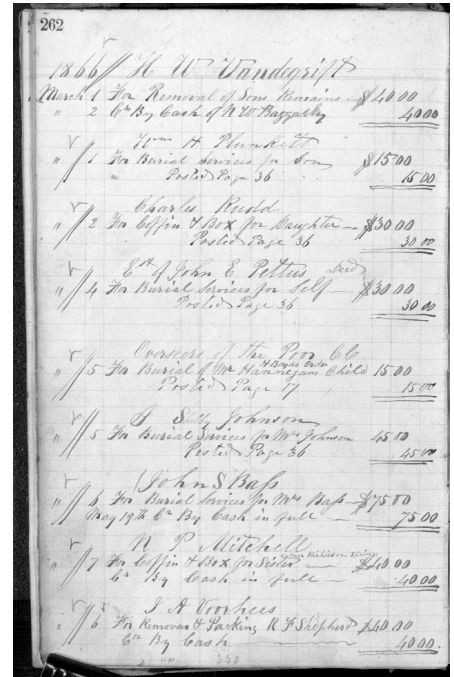 262
1866 H W Vandegrift
March 1 For Removal of Sons Remains — $40 00
" 2 Cr By Cash of N W Baggatty 40 00
Wm H Plunkett
" 1 For Burial Services for Son $15 00
" Posted Page 36 15 00
Charles Rudd
" 2 For Coffin & Box for Daughter — $30 00
Posted Page 36 30 00
Est of John E Pettus Decd
" 4 For Burial Services for Self — $30 00
Posted Page 36 30 00
Overseers of the Poor C C
Order
" 5 For Burial of Mr Hannegans Child 15 00
Posted Page 17 15 00
Johnson
" 5 For Burial Services for Mrs Johnson 45 00
Posted Page 36 45 00
John S Bass
" 6 For Burial Services for Mrs Bass — $75 00
May 19th Cr By Cash in full — 75 00
R P Mitchell
" 7 For Coffin & Box for Sister — $40 00
Cr By Cash in full — 40 00
J A Voorhees
" 6 For Removal & Packing R F Shepherd $40 00
Cr By Cash — 40 00
330